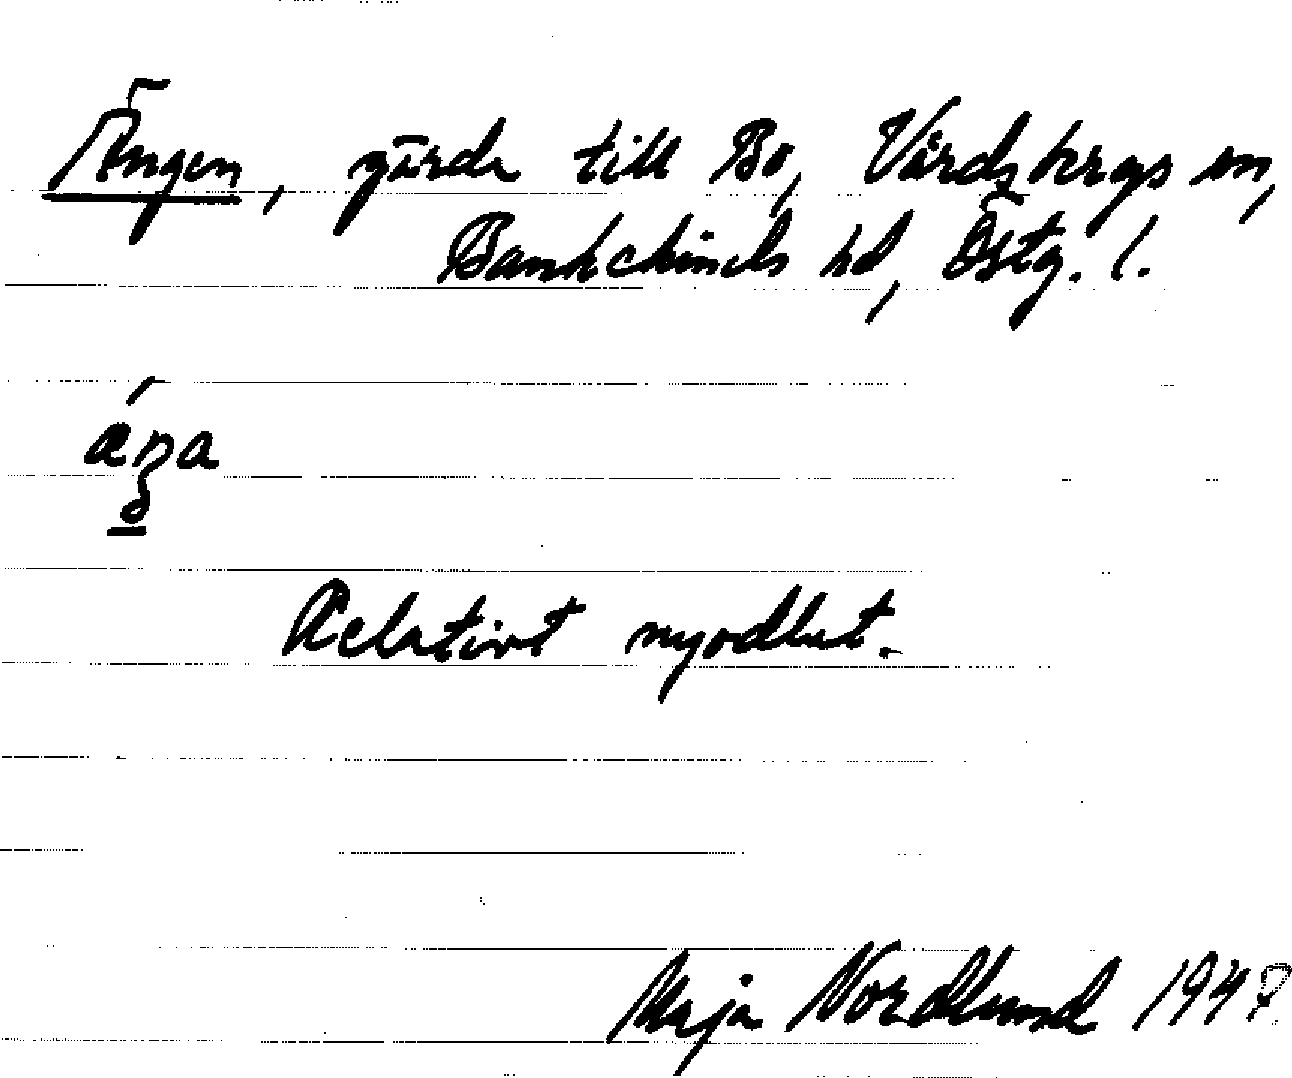 Ängen, gärde till Bo, Vårdsbergs sn,
Bankekinds hd, Östg. l.
Relativt nyodlat.
Maja Nordlund 1947